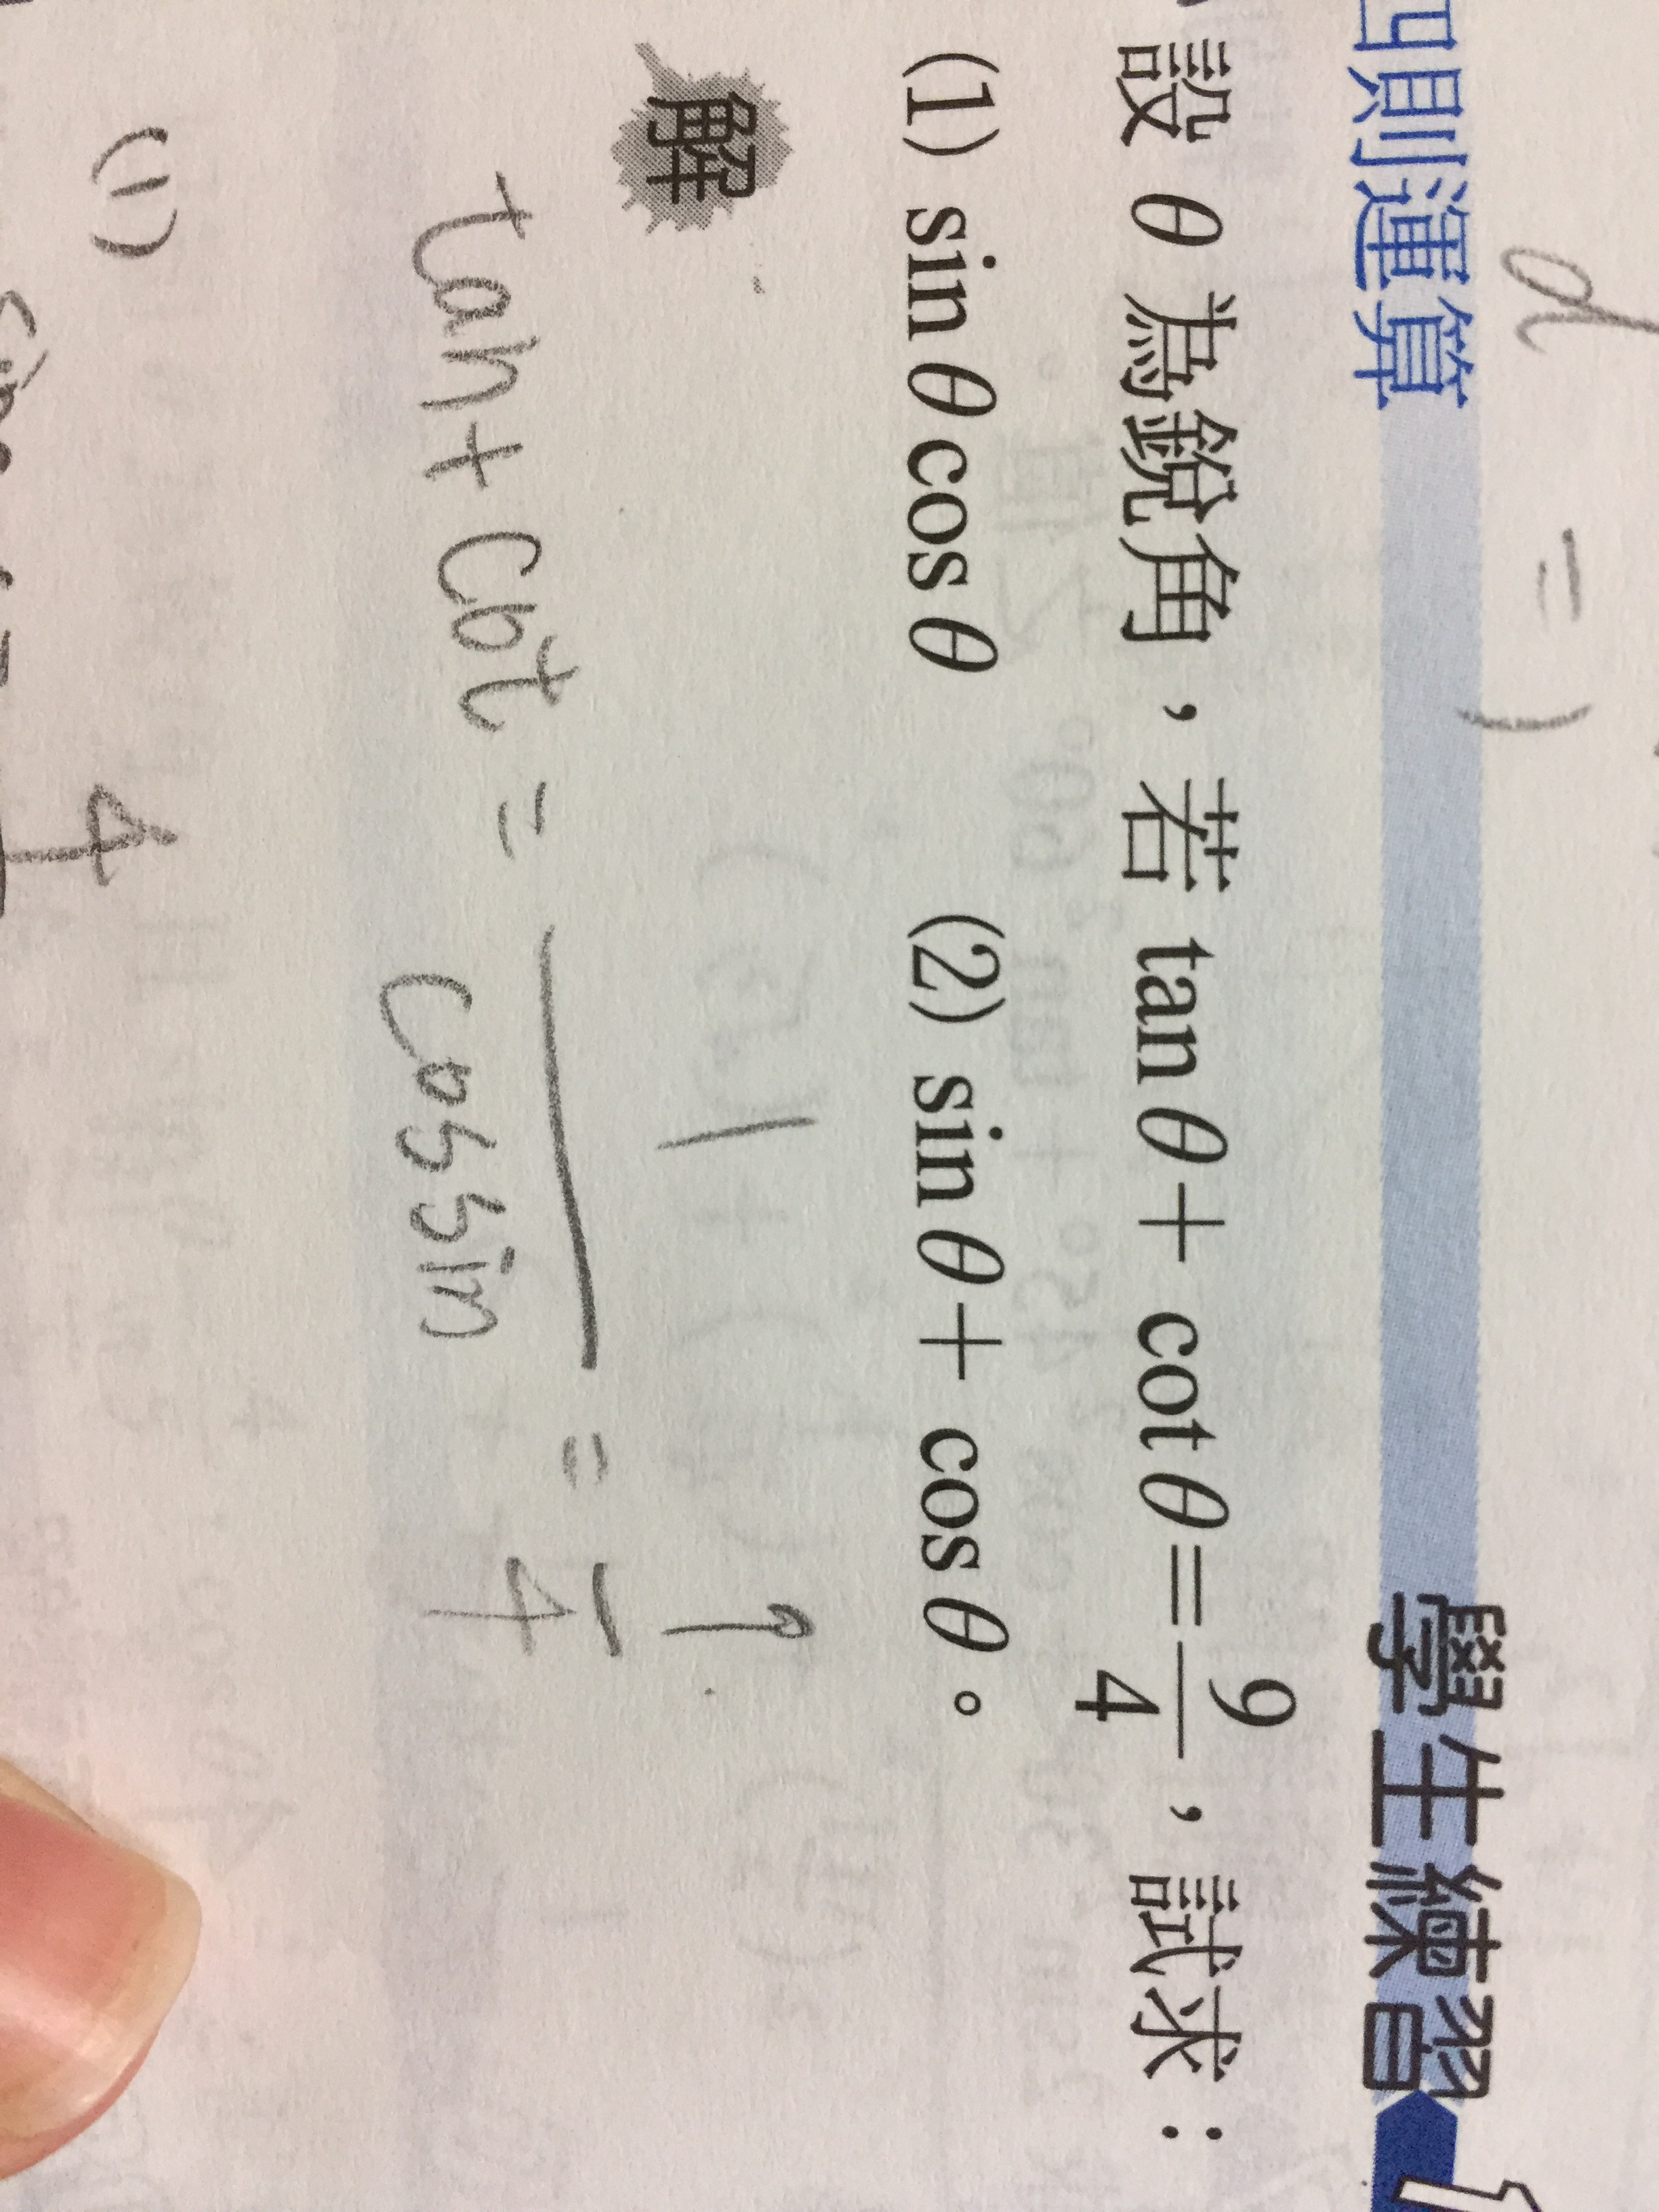 =
四則運算
學生練習
設 θ 為銳角，若 tan θ + cot θ = 9/4，試求：
(1) sin θ cos θ (2) sin θ + cos θ。
解
tan + cot = 1/cos sin = 9/4
(1)
4